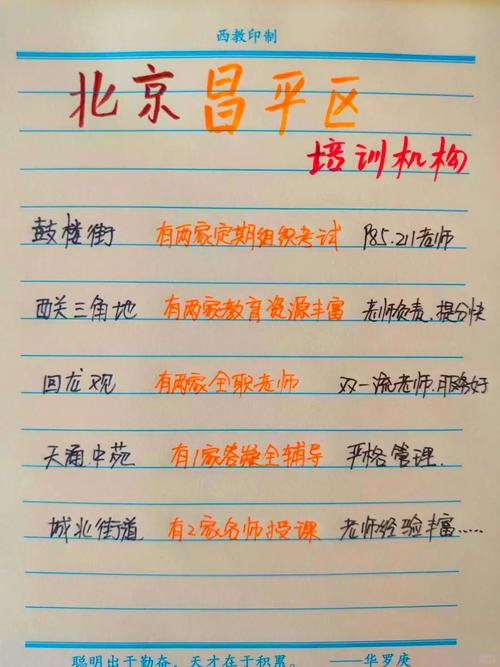 西教印制
北京昌平区
培训机构
鼓楼街 有两家定期组织考试 985.211老师
西关三角地 有两家教育资源丰富 老师负责.提分快
回龙观 有两家全职老师 双一流老师.服务好
天通中苑 有1家答疑全辅导 严格管理.
城北街道 有2家名师授课 老师经验丰富......
聪明出于勤奋，天才在于积累。 ——华罗庚